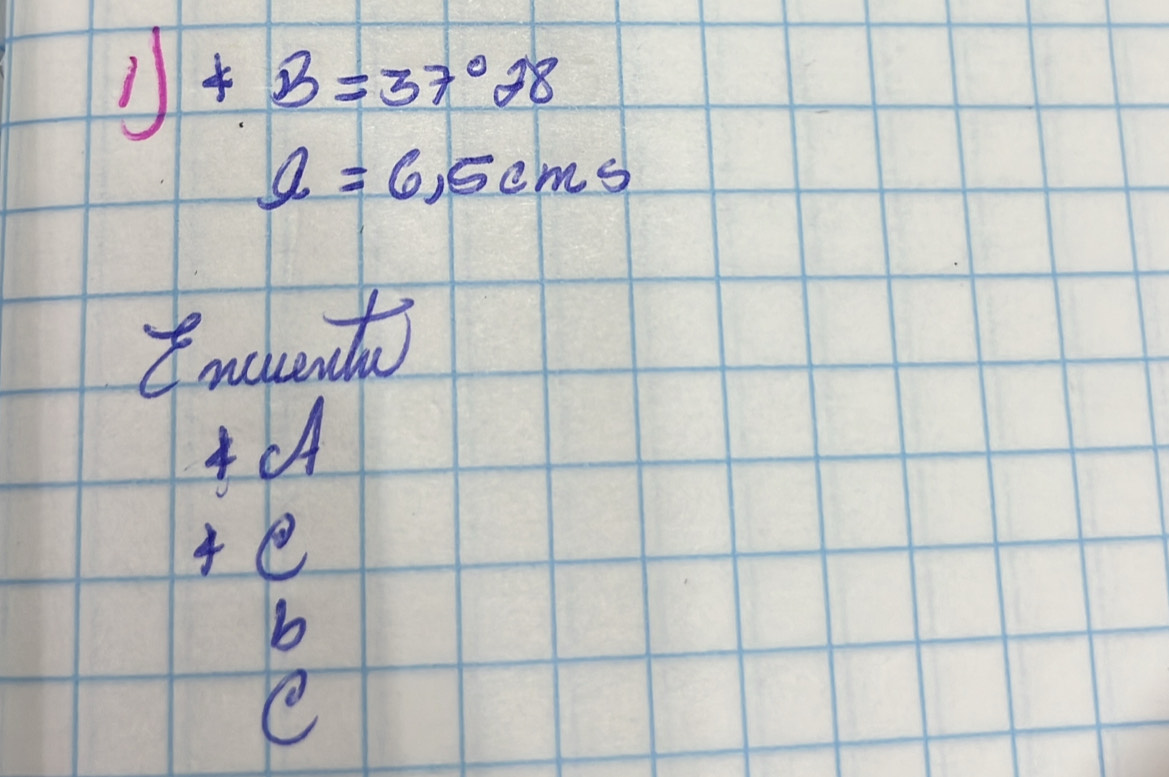 1) ∢ B = 37° 28
a = 6,5 cms
Encuentre
∢ A
∢ C
b
C